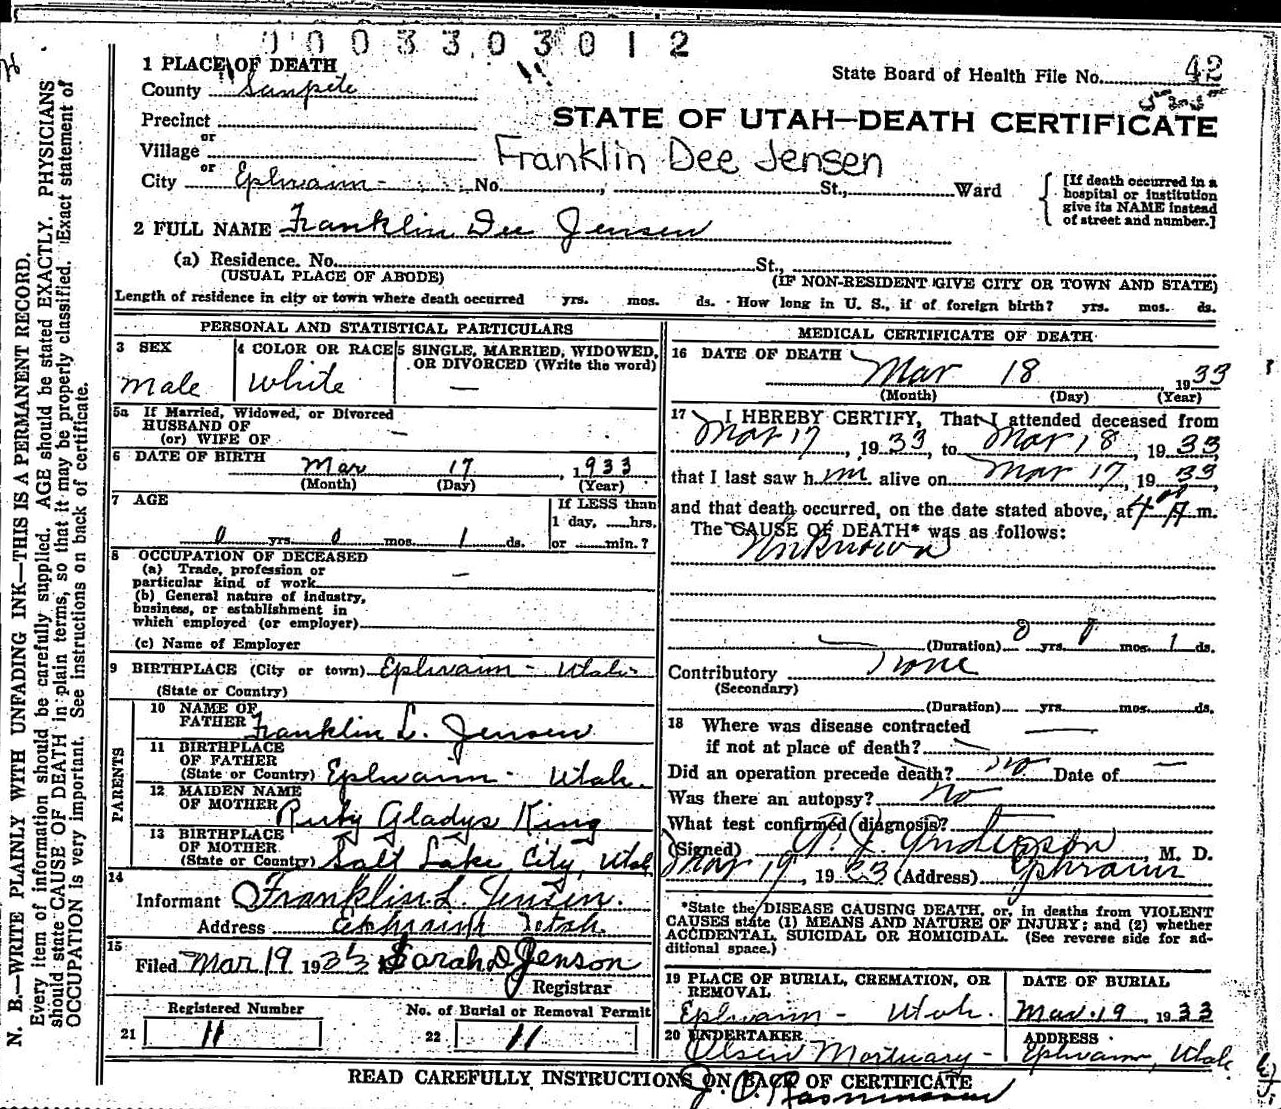 0003303012
1 PLACE OF DEATH
State Board of Health File No. 42
County Sanpete
STATE OF UTAH—DEATH CERTIFICATE
Precinct
or
Village
Franklin Dee Jensen
or
City Ephraim - No. , St., Ward
[If death occurred in a
hospital or institution
give its NAME instead
of street and number.]
2 FULL NAME Franklin Dee Jensen
(a) Residence. No. St.,
(USUAL PLACE OF ABODE) (IF NON-RESIDENT GIVE CITY OR TOWN AND STATE)
Length of residence in city or town where death occurred yrs. mos. ds. How long in U. S., if of foreign birth? yrs. mos. ds.
PERSONAL AND STATISTICAL PARTICULARS
3 SEX
Male
4 COLOR OR RACE
White
5 SINGLE, MARRIED, WIDOWED,
OR DIVORCED (Write the word)
—
5a If Married, Widowed, or Divorced
HUSBAND OF
(or) WIFE OF —
6 DATE OF BIRTH
Mar 17, 1933
(Month) (Day) (Year)
7 AGE
0 yrs. 0 mos. 1 ds.
If LESS than
1 day, hrs.
or min.?
8 OCCUPATION OF DECEASED
(a) Trade, profession or
particular kind of work —
(b) General nature of industry,
business, or establishment in
which employed (or employer)
(c) Name of Employer
9 BIRTHPLACE (City or town) Ephraim - Utah -
(State or Country)
PARENTS
10 NAME OF
FATHER Franklin L. Jensen
11 BIRTHPLACE
OF FATHER
(State or Country) Ephraim - Utah.
12 MAIDEN NAME
OF MOTHER Ruby Gladys King
13 BIRTHPLACE
OF MOTHER
(State or Country) Salt Lake City, Utah
14
Informant Franklin L. Jensen.
Address Ephraim Utah.
15
Filed Mar 19 1933 Sarah D Jenson
Registrar
Registered Number
21 11
No. of Burial or Removal Permit
22 11
MEDICAL CERTIFICATE OF DEATH
16 DATE OF DEATH
Mar 18, 1933
(Month) (Day) (Year)
17 I HEREBY CERTIFY, That I attended deceased from
Mar 17, 1933, to Mar 18, 1933,
that I last saw him alive on Mar 17, 1933,
and that death occurred, on the date stated above, at 4 00 A m.
The CAUSE OF DEATH* was as follows:
Unknown
(Duration) 0 yrs. 0 mos. 1 ds.
Contributory None
(Secondary)
(Duration) yrs. mos. ds.
18 Where was disease contracted
if not at place of death? —
Did an operation precede death? No Date of —
Was there an autopsy? No
What test confirmed diagnosis?
(Signed) Anderson, M. D.
Mar 19, 1933 (Address) Ephraim
*State the DISEASE CAUSING DEATH, or, in deaths from VIOLENT
CAUSES state (1) MEANS AND NATURE OF INJURY; and (2) whether
ACCIDENTAL, SUICIDAL OR HOMICIDAL. (See reverse side for ad-
ditional space.)
19 PLACE OF BURIAL, CREMATION, OR
REMOVAL
Ephraim - Utah.
DATE OF BURIAL
Mar. 19, 1933
20 UNDERTAKER
Olsen Mortuary -
ADDRESS
Ephraim, Utah
READ CAREFULLY INSTRUCTIONS ON BACK OF CERTIFICATE
Rasmussen
N. B.—WRITE PLAINLY WITH UNFADING INK—THIS IS A PERMANENT RECORD.
Every item of information should be carefully supplied. AGE should be stated EXACTLY. PHYSICIANS
should state CAUSE OF DEATH in plain terms, so that it may be properly classified. Exact statement of
OCCUPATION is very important. See instructions on back of certificate.